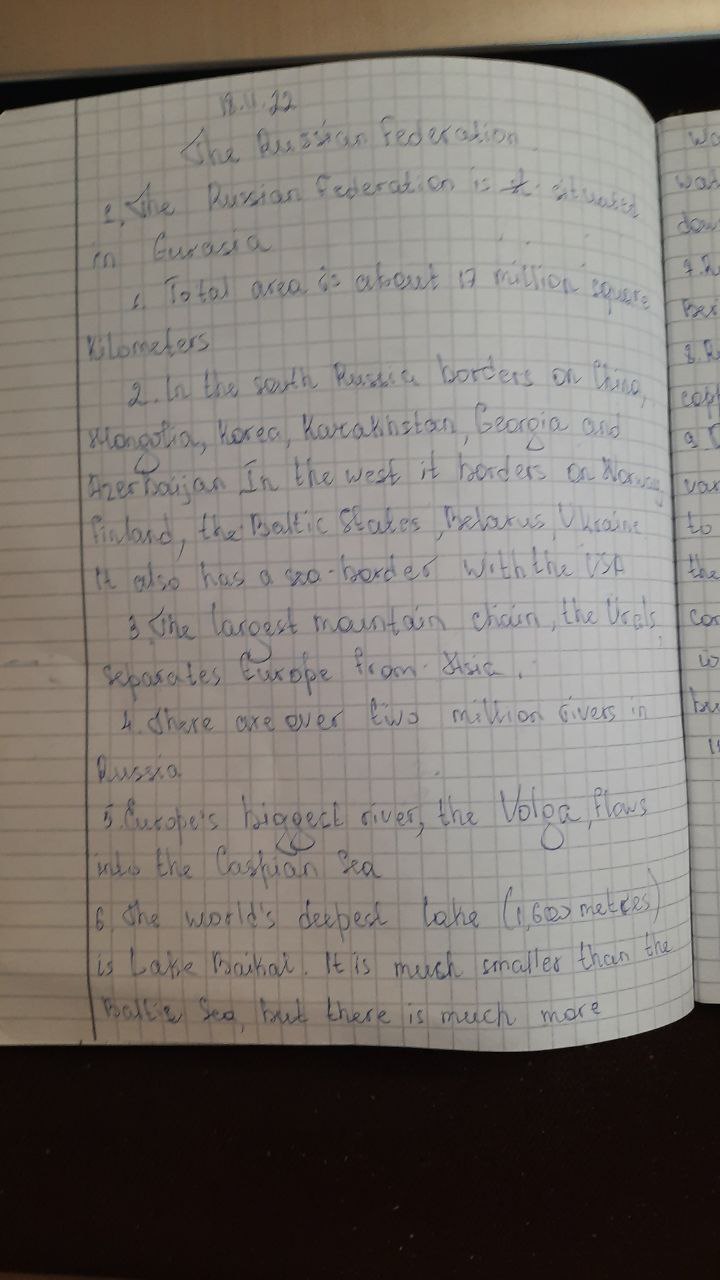 18.11.22
The Russian Federation.
1. The Russian Federation is situated
in Eurasia
1. Total area is about 17 million square
Kilometers
2. In the south Russia borders on China,
Mongolia, Korea, Kazakhstan, Georgia and
Azerbaijan In the west it borders on Norway,
Finland, the Baltic States, Belarus, Ukraine
It also has a sea-border with the USA
3. The largest mountain chain, the Urals,
separates Europe from Asia.
4. There are over two million rivers in
Russia
5. Europe's biggest river, the Volga, flows
into the Caspian Sea
6. The world's deepest lake (1,600 metres)
is Lake Baikal. It is much smaller than the
Baltic Sea, but there is much more
wa
wat
dow
7. Ru
Ber
8. R
copp
9.
var
to
the
cor
bu